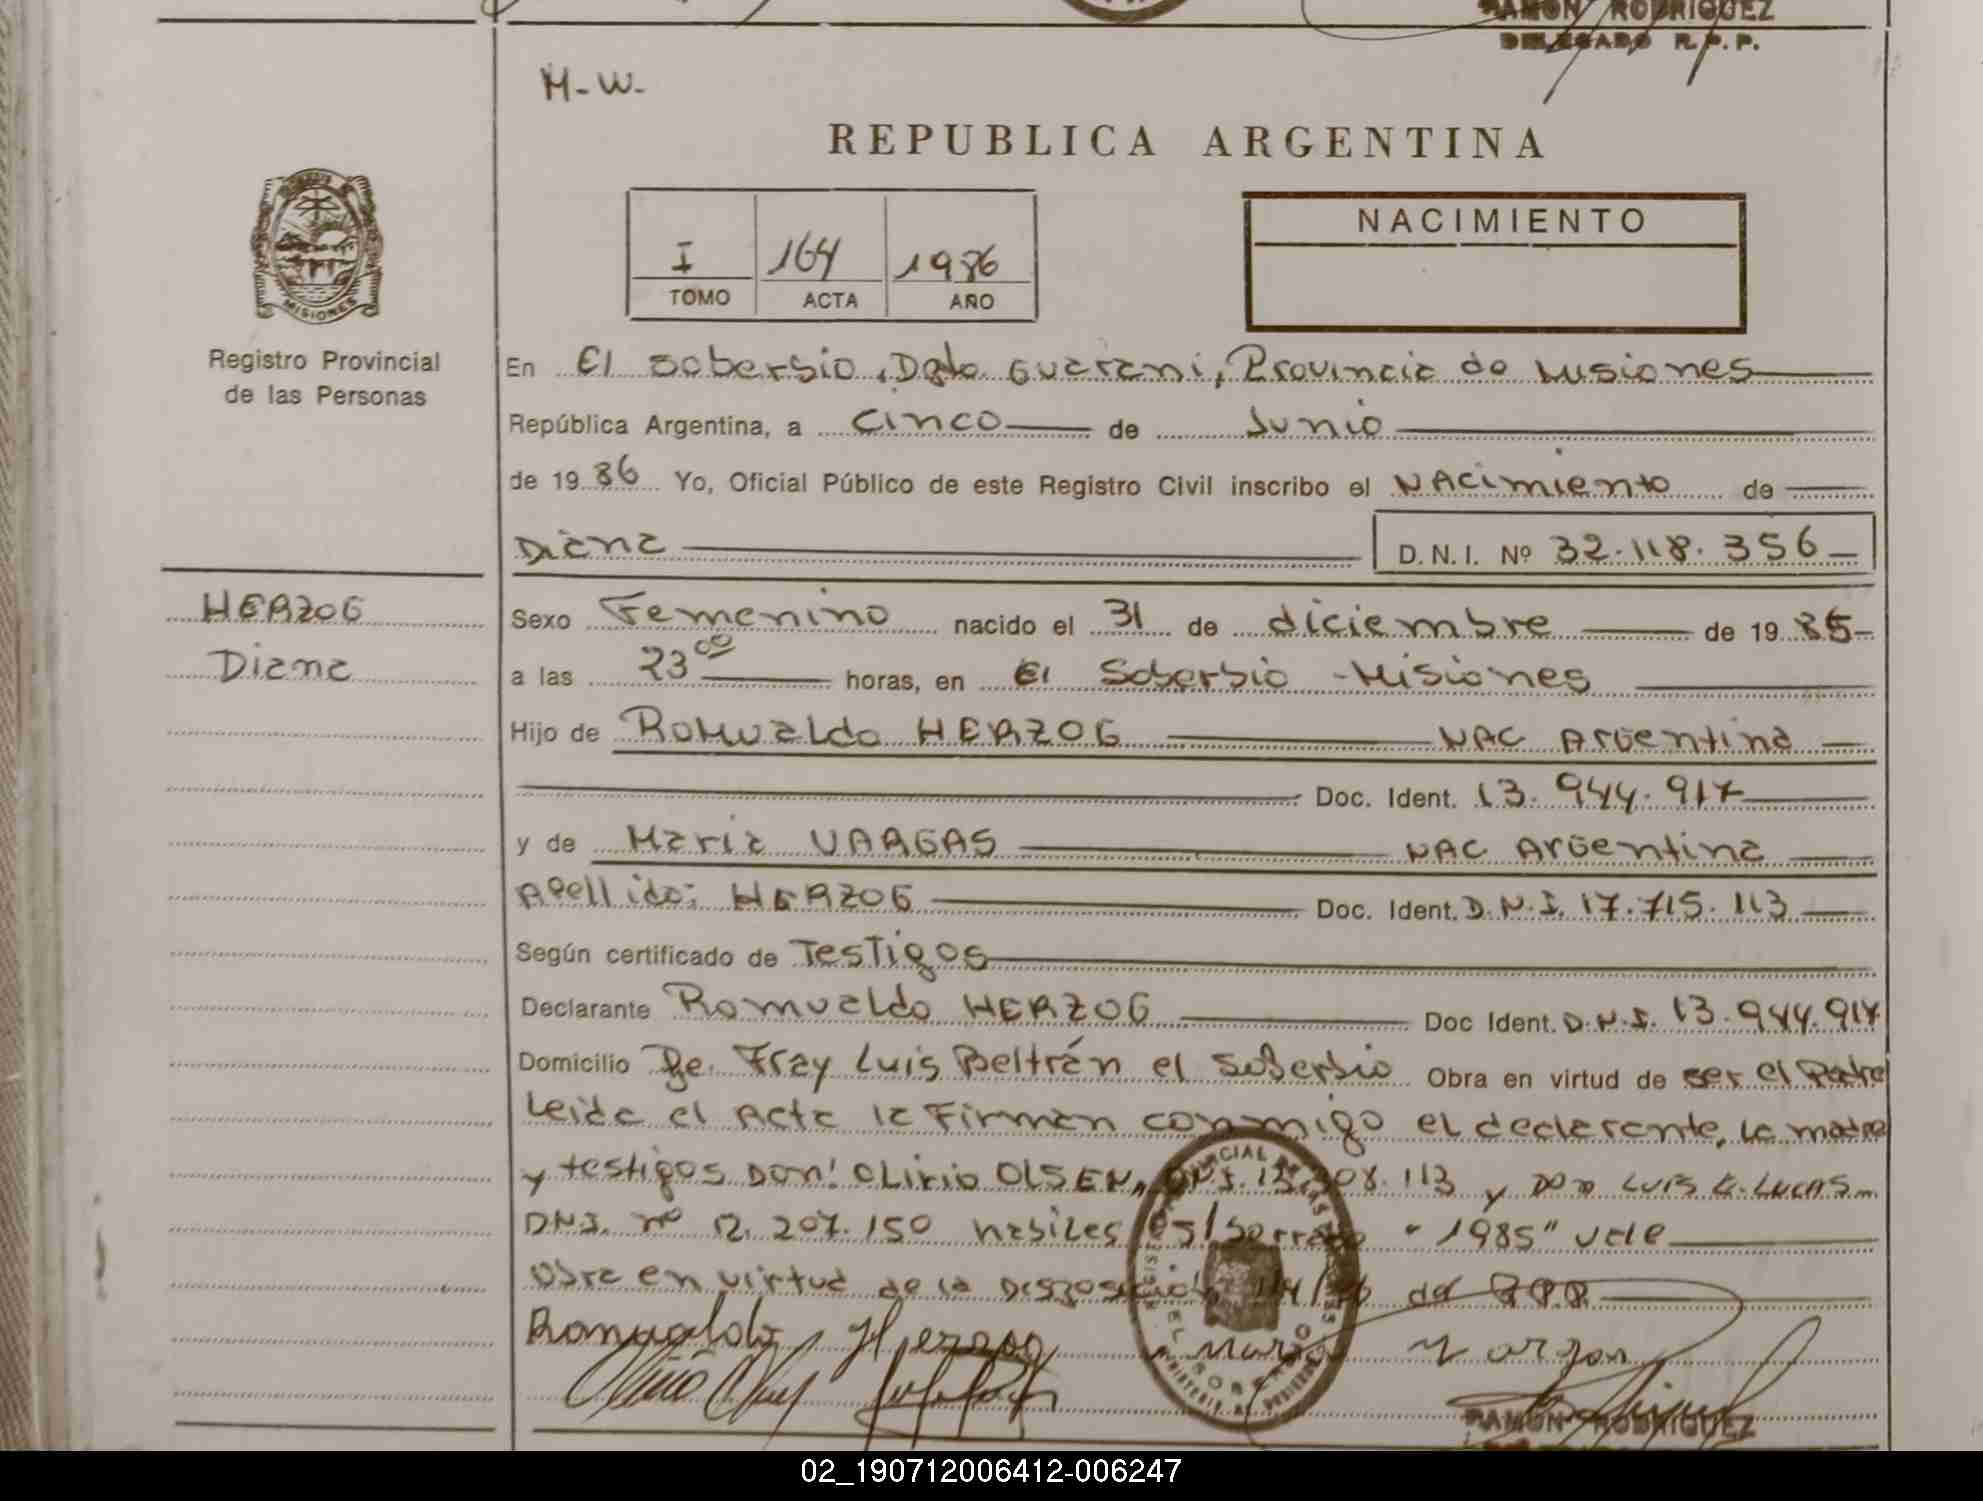 RAMON RODRIGUEZ
DELEGADO R.P.P.
M-W-
REPUBLICA ARGENTINA
I 164 1986
TOMO ACTA AÑO
NACIMIENTO
MISIONES
Registro Provincial
de las Personas
HERZOG
Diana
En El Soberbio, Dpto Guarani, Provincia de Misiones
República Argentina, a cinco de Junio
de 1986 Yo, Oficial Público de este Registro Civil inscribo el NAcimiento de
Diana D.N.I. Nº 32.118.356
Sexo Femenino nacido el 31 de diciembre de 1985
a las 23 00 horas, en El Soberbio - Misiones
Hijo de Romualdo HERZOG NAC Argentina
Doc. Ident. 13.944.917
y de Maria VARGAS NAC Argentina
Apellido: HERZOG Doc. Ident. D.N.I. 17.715.113
Según certificado de Testigos
Declarante Romualdo HERZOG Doc Ident. D.N.I. 13.944.917
Domicilio Fray Luis Beltrán el Soberbio Obra en virtud de ser el Padre
Leida el Acta la Firman conmigo el declarante, la madre
y testigos Don: OLirio OLSEN, DNI. 113 y Don LUIS LUCAS
DNI. nº 12.207.150 habiles S/Borrado "1985" vale
Obra en virtud de la Disposición del RPP
Romualdo Herzog Maria Vargas
RAMON RODRIGUEZ
02_190712006412-006247